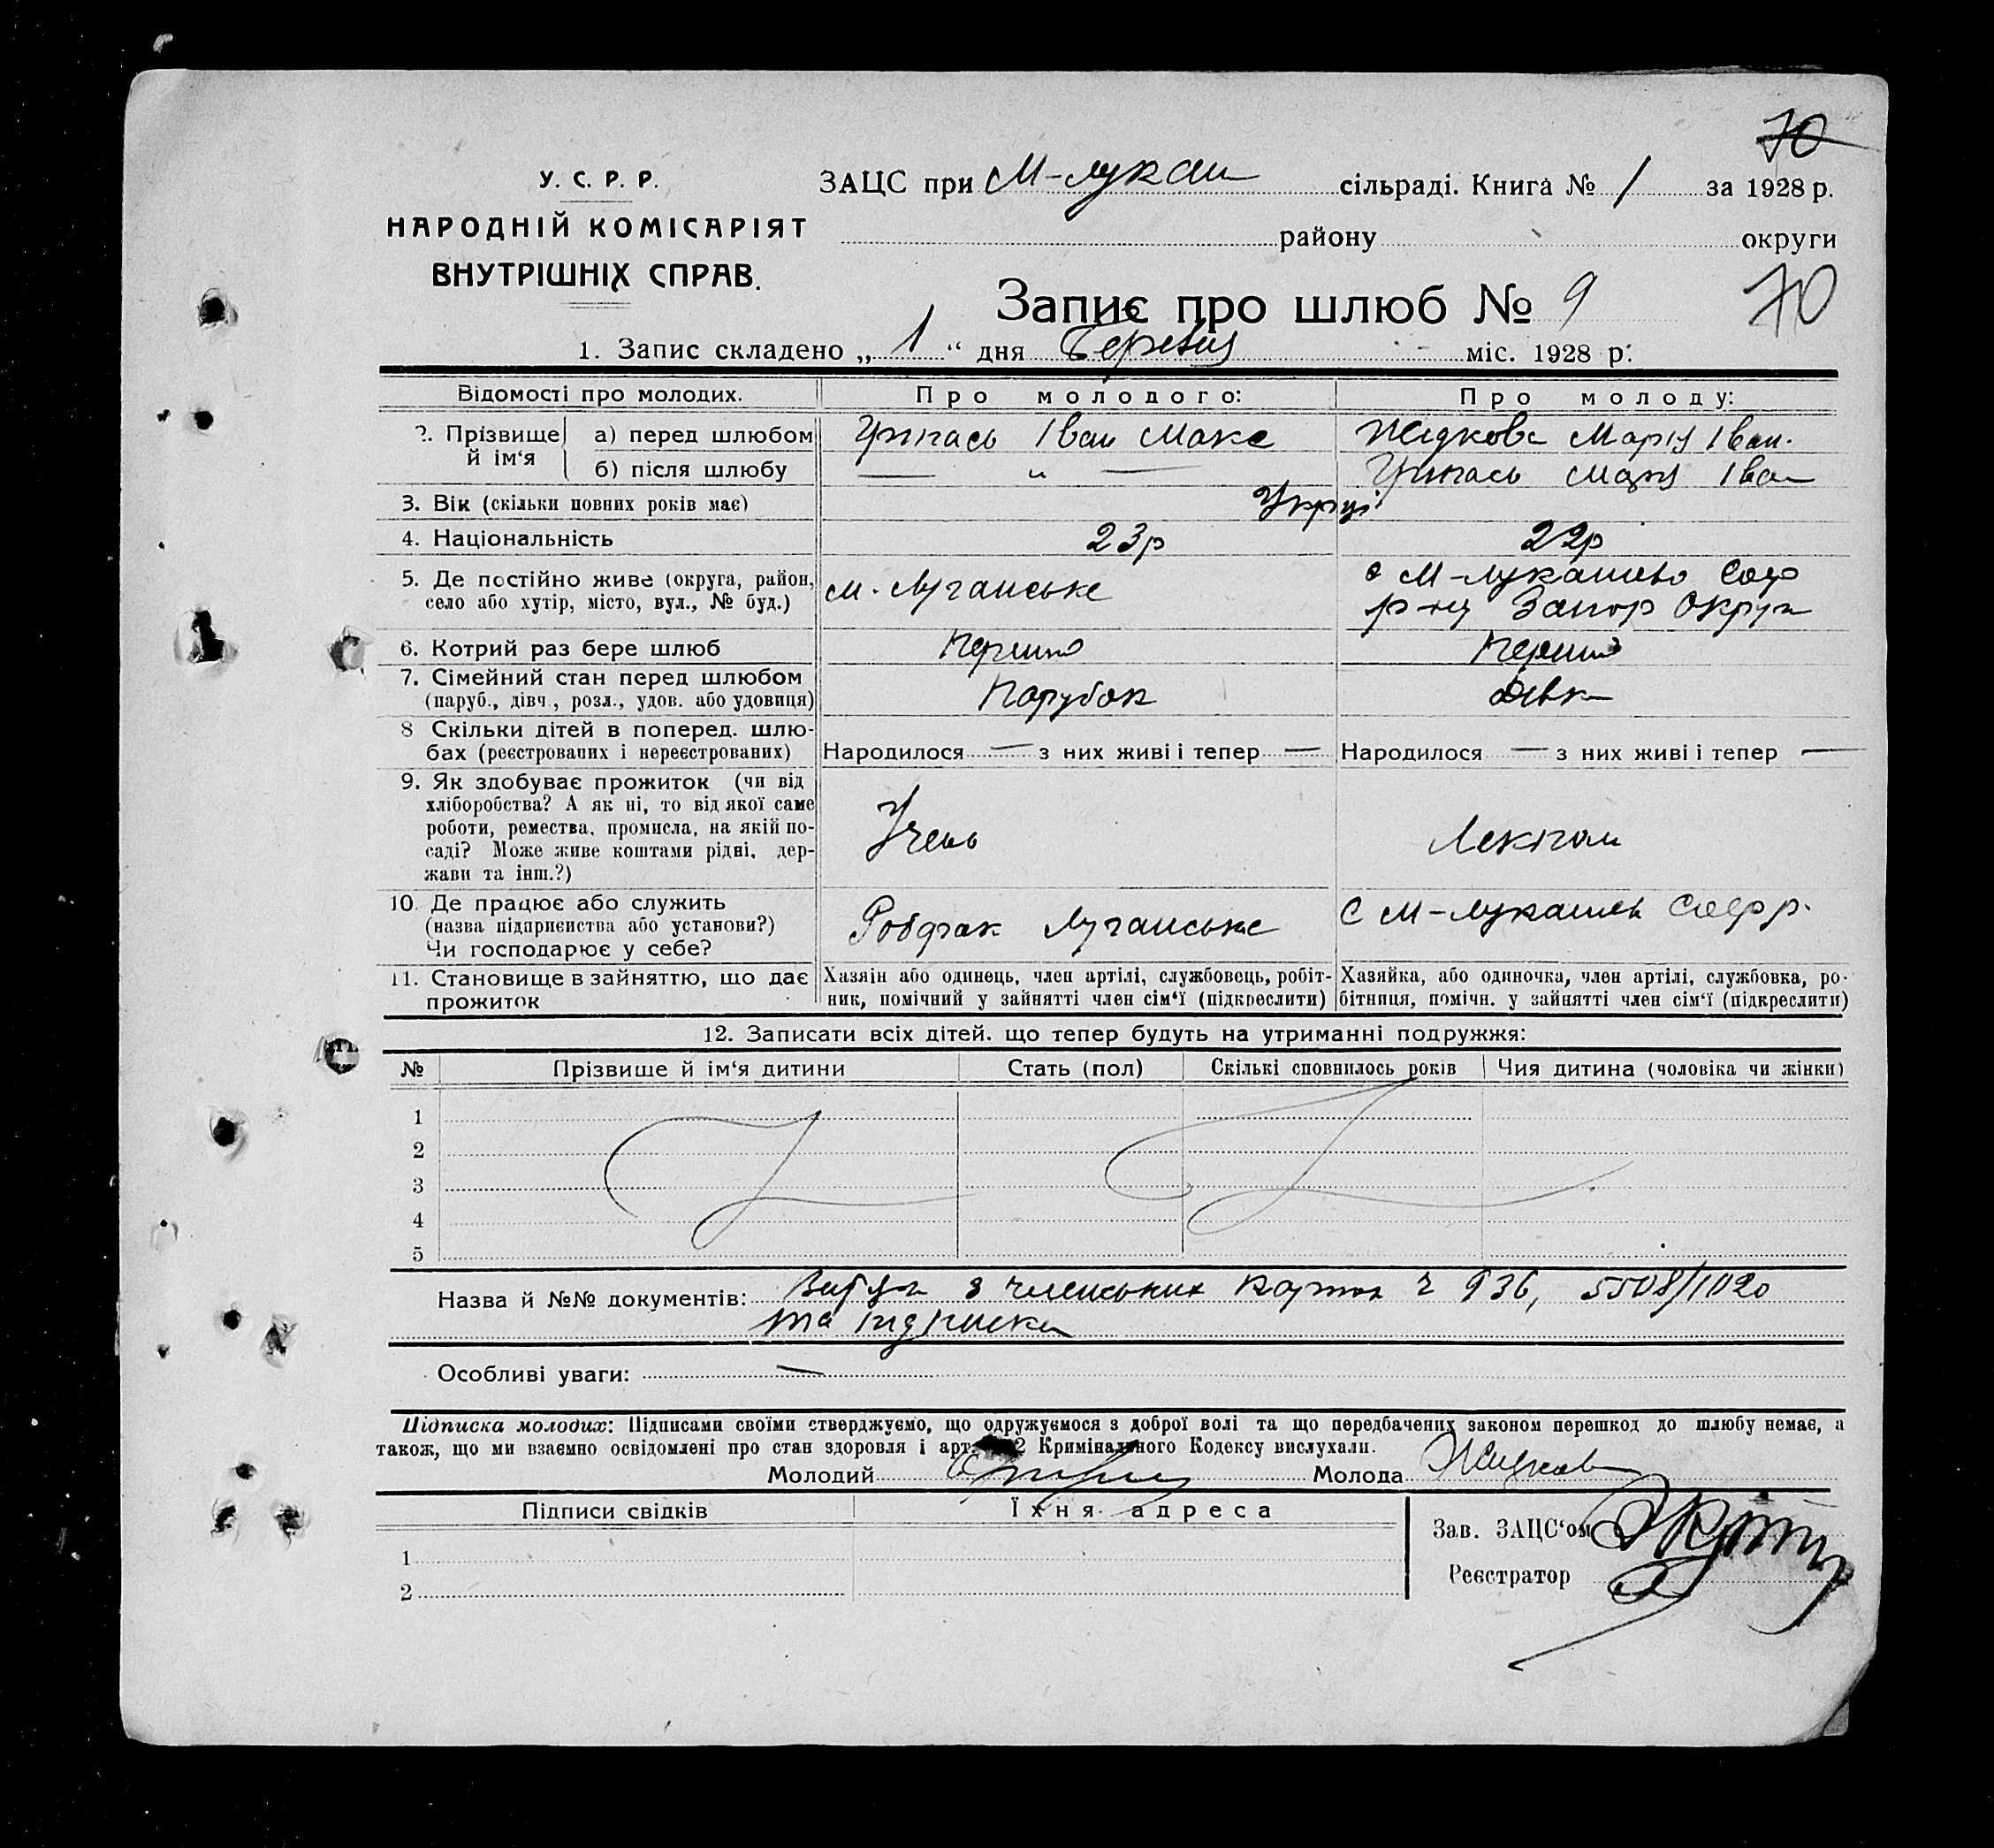 70
У. С. Р. Р.
НАРОДНІЙ КОМІСАРІЯТ
ВНУТРІШНІХ СПРАВ.
ЗАЦС при М-лукаш сільраді. Книга № 1 за 1928 р.
району округи
Запис про шлюб № 9
70
1. Запис складено „ 1 “ дня Березня міс. 1928 р.
Відомості про молодих. Про молодого: Про молоду:
2. Прізвище й ім‘я а) перед шлюбом Іван Макс Жидкова Марія Іван.
б) після шлюбу — „ — Марія Іван
3. Вік (скільки повних років має) Укрці
4. Національність 23р 22р
5. Де постійно живе (округа, район, село або хутір, місто, вул., № буд.) м. Луганське с М-Лукашево Соф
р-ну Запор Округи
6. Котрий раз бере шлюб Перший Перший
7. Сімейний стан перед шлюбом Парубок Дівка
(паруб., дівч., розл., удов. або удовиця)
8 Скільки дітей в поперед. шлюбах (реєстрованих і нереєстрованих) Народилося — з них живі і тепер — Народилося — з них живі і тепер —
9. Як здобуває прожиток (чи від
хліборобства? А як ні, то від якої саме
роботи, ремества, промисла, на якій по-
саді? Може живе коштами рідні, дер-
жави та інш.?)
Учень Лекпом
10. Де працює або служить
(назва підприємства або установи?)
Чи господарює у себе?
Робфак Луганське С М-Лукашев Соф р.
11. Становище в зайняттю, що дає
прожиток
Хазяін або одинець, член артілі, службовець, робіт-
ник, помічний у зайнятті член сім‘ї (підкреслити)
Хазяйка, або одиночка, член артілі, службовка, ро-
бітниця, помічн. у зайнятті член сім‘ї (підкреслити)
12. Записати всіх дітей. що тепер будуть на утриманні подружжя:
№ Прізвище й ім‘я дитини Стать (пол) Скількі сповнилось років Чия дитина (чоловіка чи жінки)
1
2
3
4
5
Назва й №№ документів: з членських карток ч 936, 5508/1020
та підписка
Особливі уваги: —
Підписка молодих: Підписами своїми стверджуємо, що одружуємося з доброї волі та що передбачених законом перешкод до шлюбу немає, а
також, що ми взаємно освідомлені про стан здоровля і арт. 2 Кримінального Кодексу вислухали.
Молодий Молода Жидкова
Підписи свідків Їхня адреса
1
2
Зав. ЗАЦС‘ом
Реєстратор